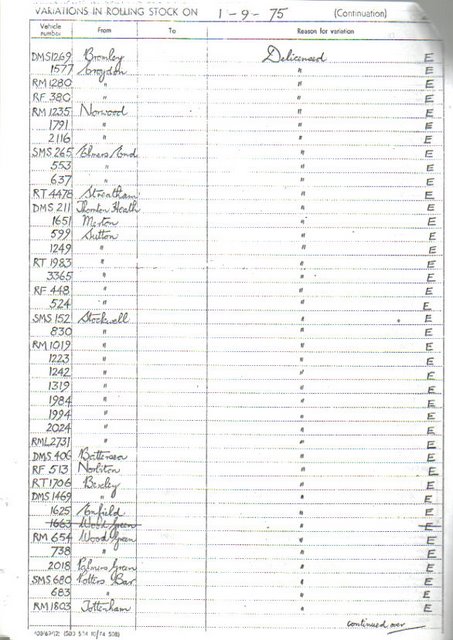 VARIATIONS IN ROLLING STOCK ON 1-9-75 (Continuation)
Vehicle number From To Reason for variation
DMS1269 Bromley Delicensed E
1577 Croydon " E
RM 1280 " " E
RF 380 " " E
RM 1235 Norwood " E
1791 " " E
2116 " " E
SMS 265 Elmers End " E
553 " " E
637 " " E
RT 4478 Streatham " E
DMS 211 Thornton Heath " E
1651 Merton " E
599 Sutton " E
1249 " " E
RT 1983 " " E
3365 " " E
RF 448 " " E
524 " " E
SMS 152 Stockwell " E
830 " " E
RM 1019 " " E
1223 " " E
1242 " " E
1319 " " E
1984 " " E
1994 " " E
2024 " " E
RML2731 " " E
DMS 406 Battersea " E
RF 513 Norbiton " E
RT 1706 Bexley " E
DMS 1469 " " E
1625 Enfield " E
1663 Wood Green " E
RM 654 Wood Green " E
738 " " E
2018 Palmers Green " E
SMS 680 Potters Bar " E
683 " " E
RM 1803 Tottenham " E
continued over